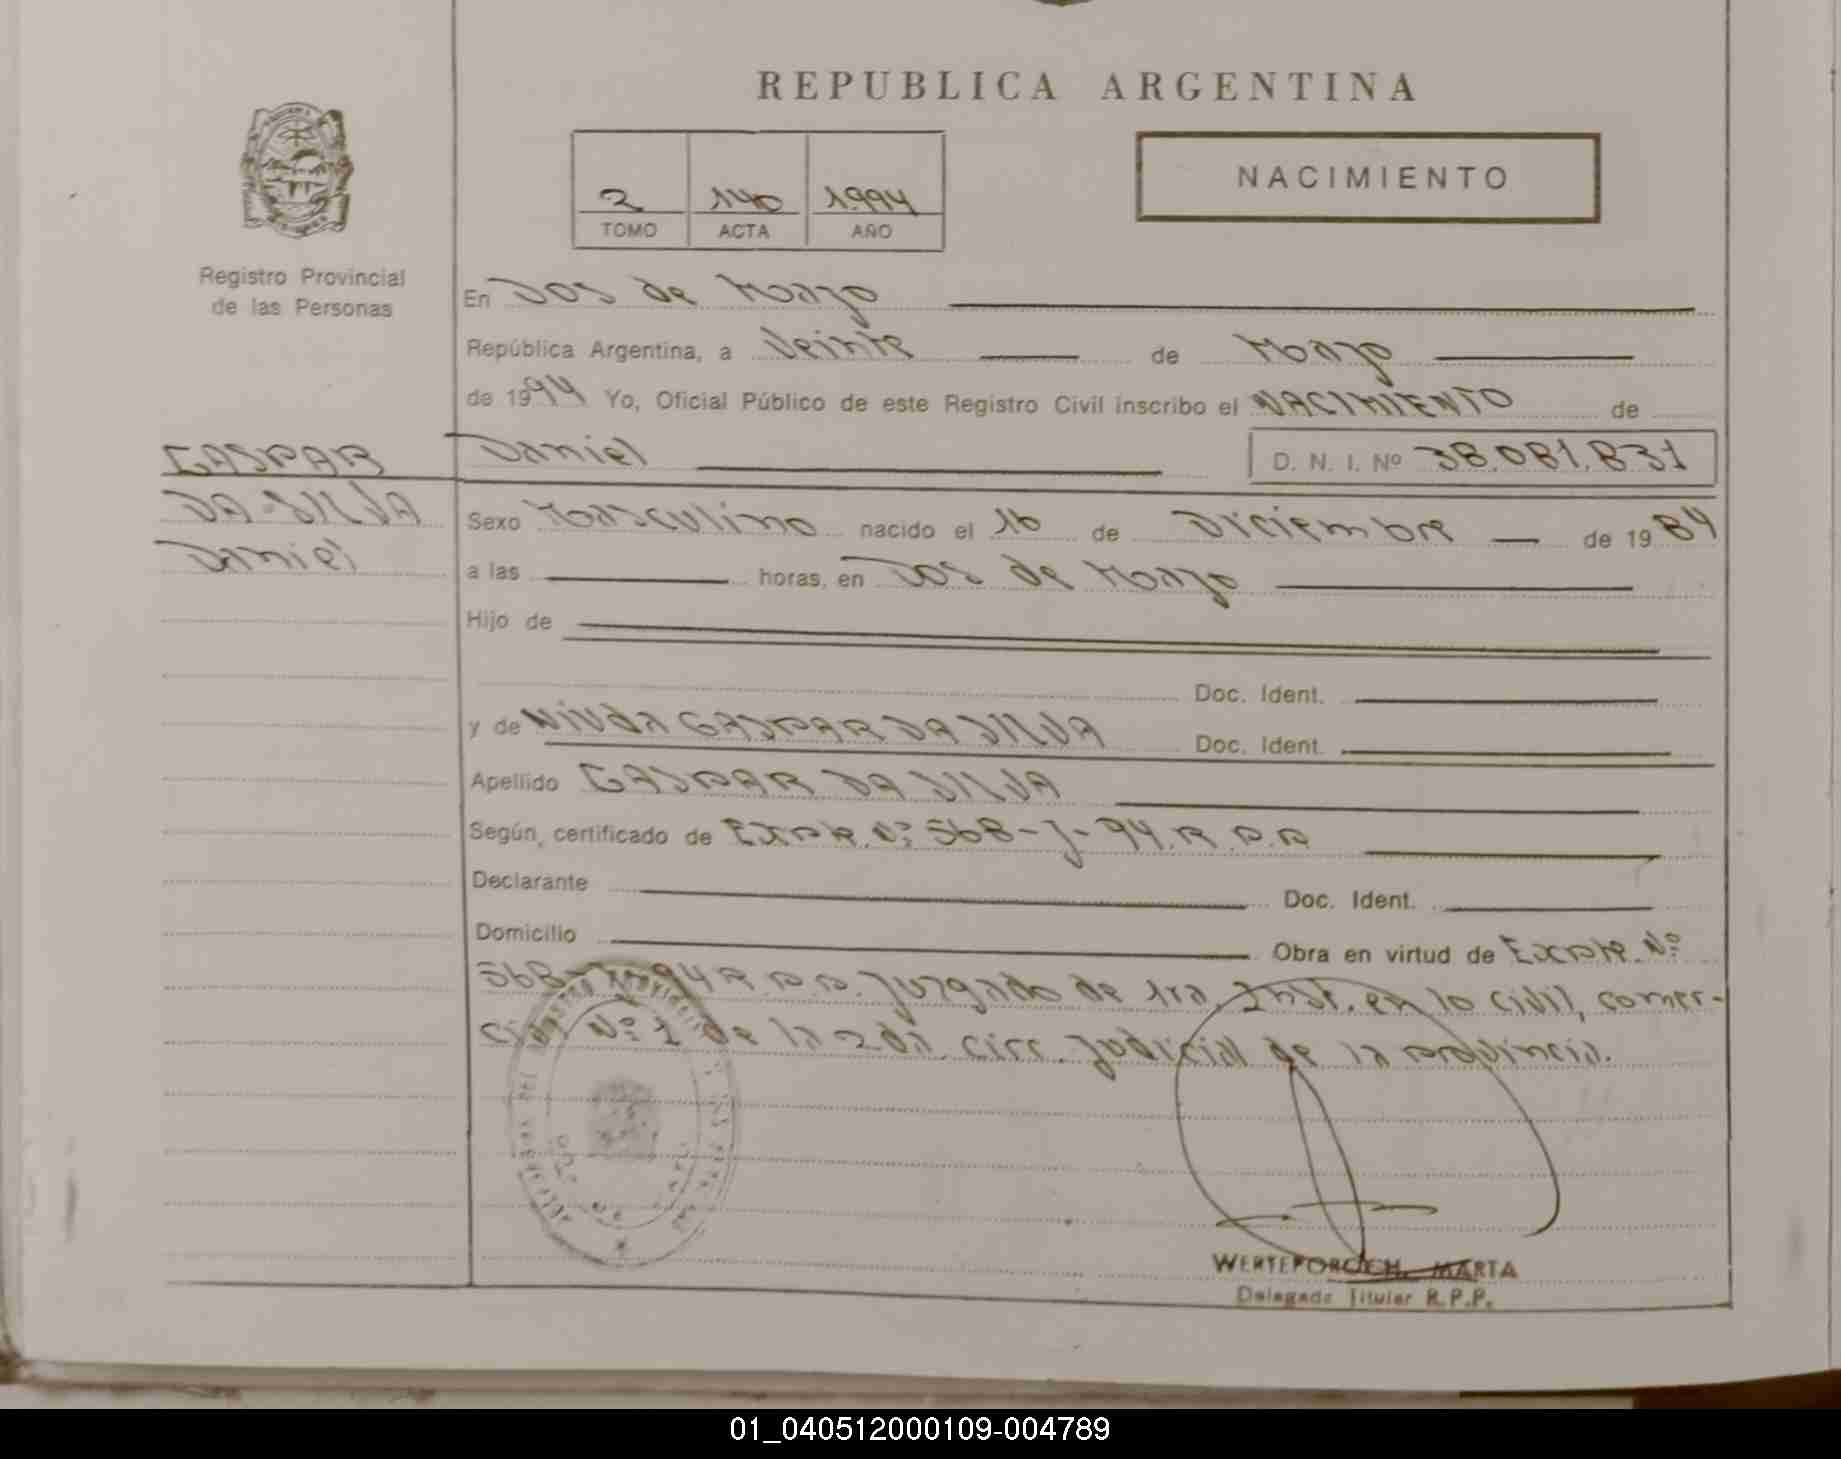 REPUBLICA ARGENTINA
NACIMIENTO
2 140 1994
TOMO ACTA AÑO
Registro Provincial
de las Personas
En Dos de Mayo
República Argentina, a Veinte de Mayo
de 1994 Yo, Oficial Público de este Registro Civil inscribo el NACIMIENTO de
GASPAR
DA SILVA
Daniel
Daniel D. N. I. Nº 38.081.831
Sexo Masculino nacido el 16 de Diciembre de 1984
a las horas, en Dos de Mayo
Hijo de
Doc. Ident.
y de GASPAR DA SILVA Doc. Ident.
Apellido GASPAR DA SILVA
Según, certificado de Expte. Nº 568-J-94. R.P.P
Declarante Doc. Ident.
Domicilio Obra en virtud de Expte. Nº
568-J-94 R.P.P. Juzgado de 1ra. Inst. en lo Civil, comer-
cial Nº 1 de la 2da. Circ. Judicial de la provincia.
MARTA
Delegada Titular R.P.P.
01_040512000109-004789